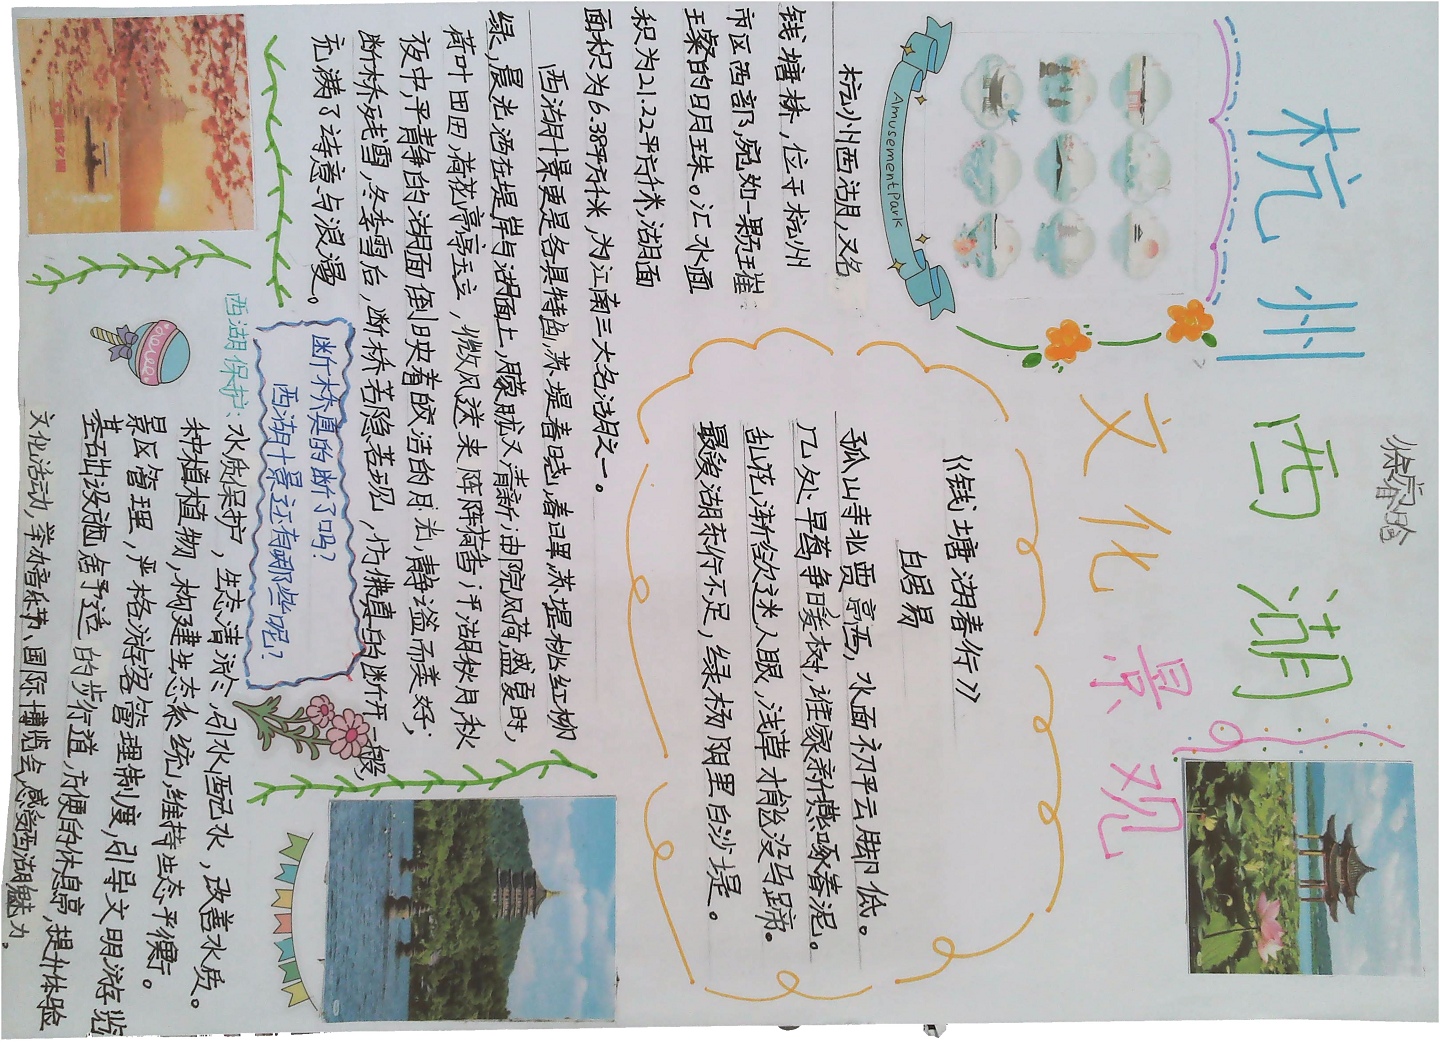 杭州 西湖
文化景观
Amusement Park
杭州西湖,又名
钱塘桥,位于杭州
市区西部,宛如一颗璀
璨的日月珠。汇水面
积为21.22平方千米,湖面
面积为6.38平方千米,为江南三大名湖之一。
西湖十景更是各具特色,苏堤春晓,春日里,苏堤松红柳
绿,晨光洒在堤岸与湖面上,朦胧又清新;曲院风荷,盛夏时,
荷叶田田,荷花亭亭玉立,微风送来阵阵荷香;平湖秋月秋
夜中,平静的湖面倒映着皎洁的月光,静谧而美好;
断桥残雪,冬季雪后,断桥若隐若现,仿佛真的断开一般,
充满了诗意与浪漫。
《钱塘湖春行》
白居易
孤山寺北贾亭西,水面初平云脚低。
几处早莺争日暖树,谁家新燕啄春泥。
乱花渐欲迷人眼,浅草才能没马蹄。
最爱湖东行不足,绿杨阴里白沙堤。
断桥真的断了吗?
西湖十景还有哪些呢?
西湖保护:水质保护,生态清淤,引水配水,改善水质。
种植植物,构建生态系统,维持生态平衡。
景区管理,严格游客管理制度,引导文明游览
基础设施:舒适的步行道,方便的休息亭,提升体验
文化活动,举办音乐节、国际博览会,感受西湖魅力。